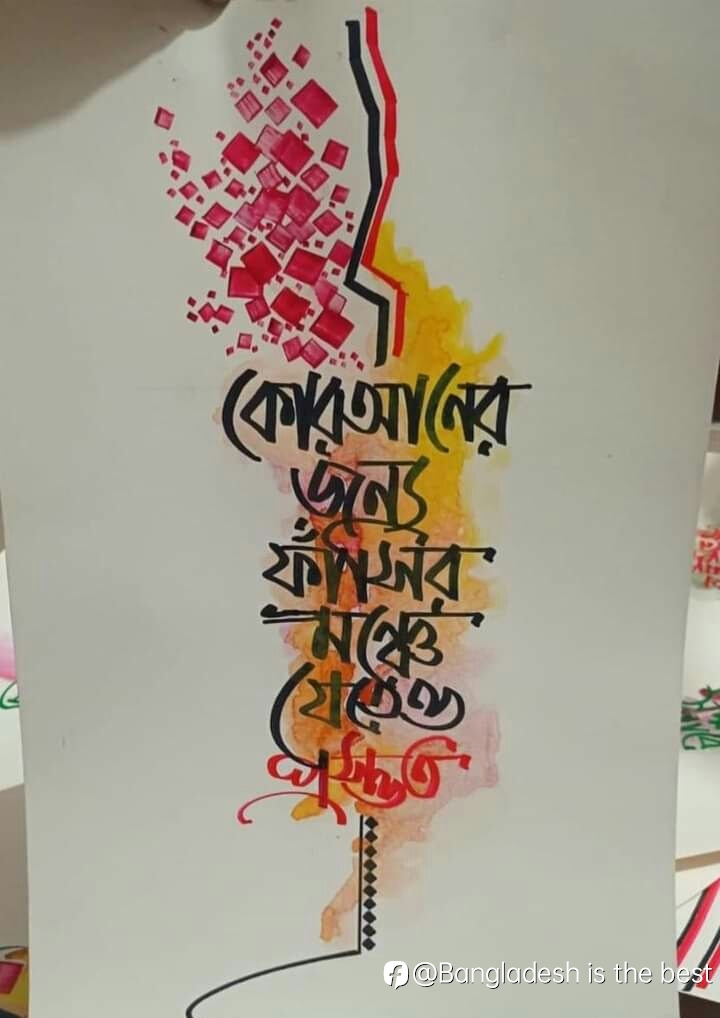 কোরআনের
জন্যে
ফাঁসির
মঞ্চেও
যেতে
প্রস্তুত
@Bangladesh is the best